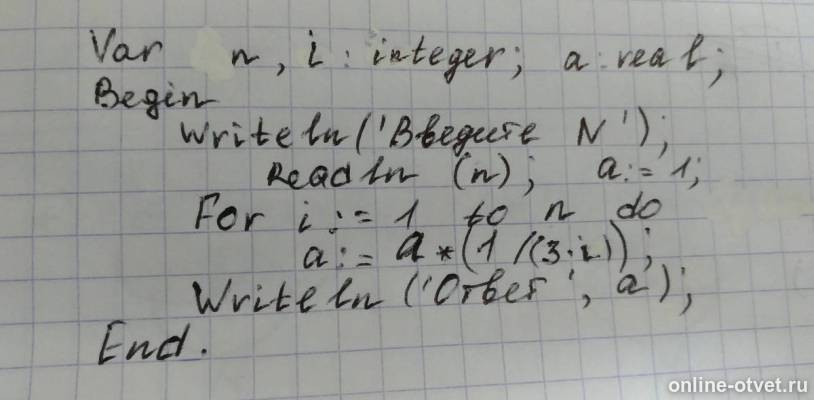 Var n, i : integer; a : real;
Begin
Writeln('Введите N');
Readln (n); a := 1;
For i := 1 to n do
a := a * (1 /(3·i));
Writeln ('Ответ', a);
End.
online-otvet.ru